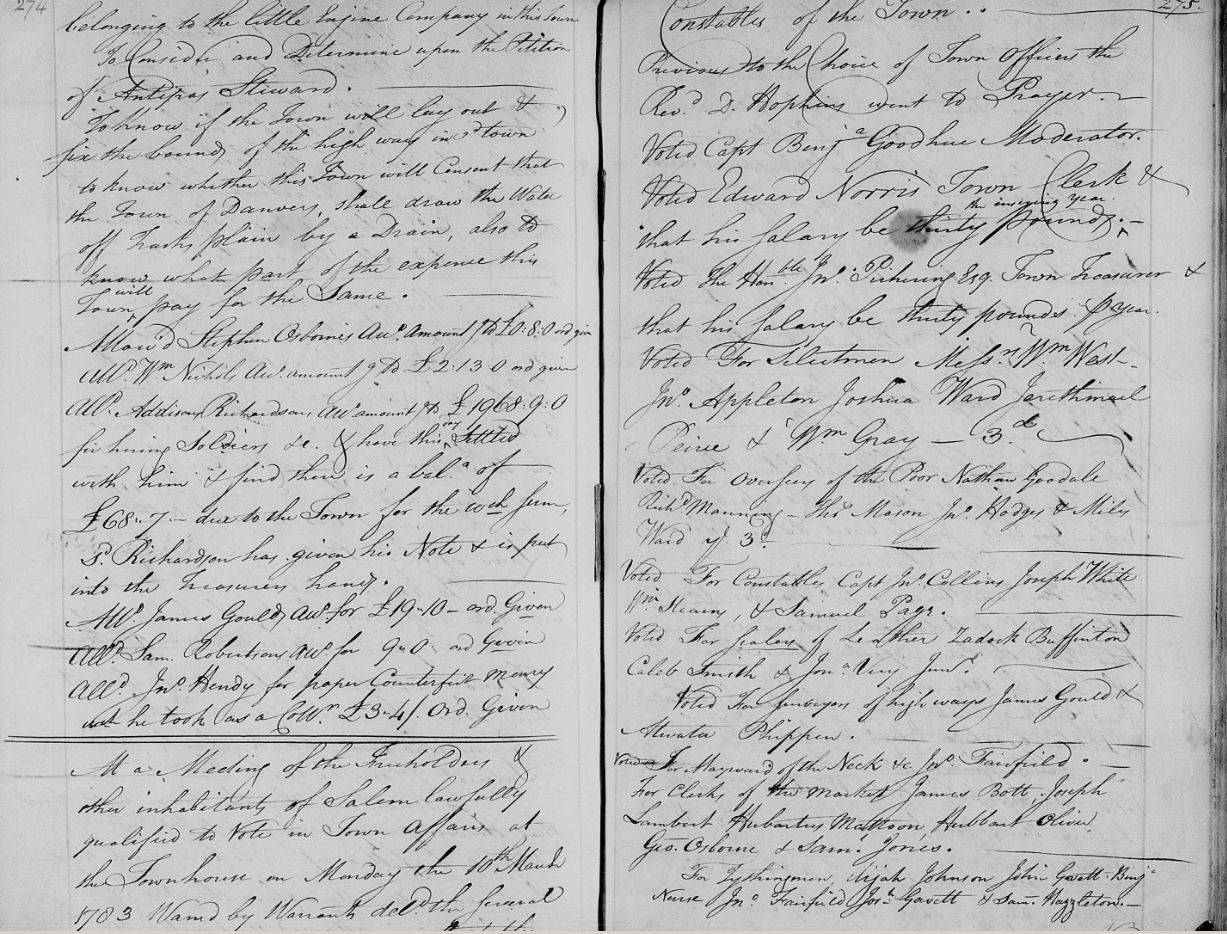 274
belonging to the little Engine Company in this Town
To Consider and Determine upon the Petition
of Antipas Steward.
To know if the Town will lay out &
fix the bounds of the high way in sd town
to know whether this Town will Consent that
the Town of Danvers, shall draw the Water
off Trasks plain by a Drain, also to
know what part of the expence this
Town will pay for the Same.
Allow'd Stephen Osborns Acct. amountg to £0:8:0 ord given
Alld. Wm Nichols Acct. amountg to £2:13 0 ord given
Alld. Addison Richardsons Acct amountg to £1968:9:0
for hiring Soldiers &c. & have this day Settled
with him & find there is a bala. of
£68"7 — due to the Town for the wch sum,
sd. Richardson has given his Note & is put
into the Treasurers hands.
Alld. James Goulds Acct. for £19"10 — ord. Given
Alld. Sam. Robertsons Acct for 9"0 ord Given
Alld. Jno. Hendy for paper Counterfeit Money
he took as a Collr. £3"4/. Ord. Given
At a Meeting of the Freeholders &
other inhabitants of Salem lawfully
qualified to Vote in Town Affairs at
the Townhouse on Monday the 10th March
1783 Warnd by Warrants deld. the several
275.
Constables of the Town..
Previous to the Choice of Town Officers the
Revd D. Hopkins went to Prayer.
Voted Capt Benja Goodhue Moderator.
Voted Edward Norris Town Clerk &
that his Salary be thirty pounds the ensuing year.
Voted The Honble. Jno. Pickering Esq. Town Treasurer &
that his Salary be thirty pounds p year.
Voted For Selectmen Messrs Wm West
Jno. Appleton Joshua Ward Jerethmael
Peirce & Wm Gray — 3.d
Voted For overseers of the Poor Nathan Goodale
Richd Manning — Thos Mason Jno. Hodges & Miles
Ward ye 3d.
Voted For Constables Capt Jno. Collins Joseph White
Wm Stearns, & Samuel Page.
Voted For Sealers of Leather Zadock Buffinton
Caleb Smith & Jona Very Junr.
Voted For surveyors of highways James Gould &
Atwater Phippen.
Voted For Hayward of the Neck &c Jno. Fairfield.
For Clerks of the Market James Bott, Joseph
Lambert Hubartus Mattoon, Hubbart Oliver,
Geo. Osborne & Saml. Jones.
For Tythingmen, Elijah Johnson John Gavett Benja
Nurse Jno. Fairfied Jos. Gavett & Sam. Hazzleton.